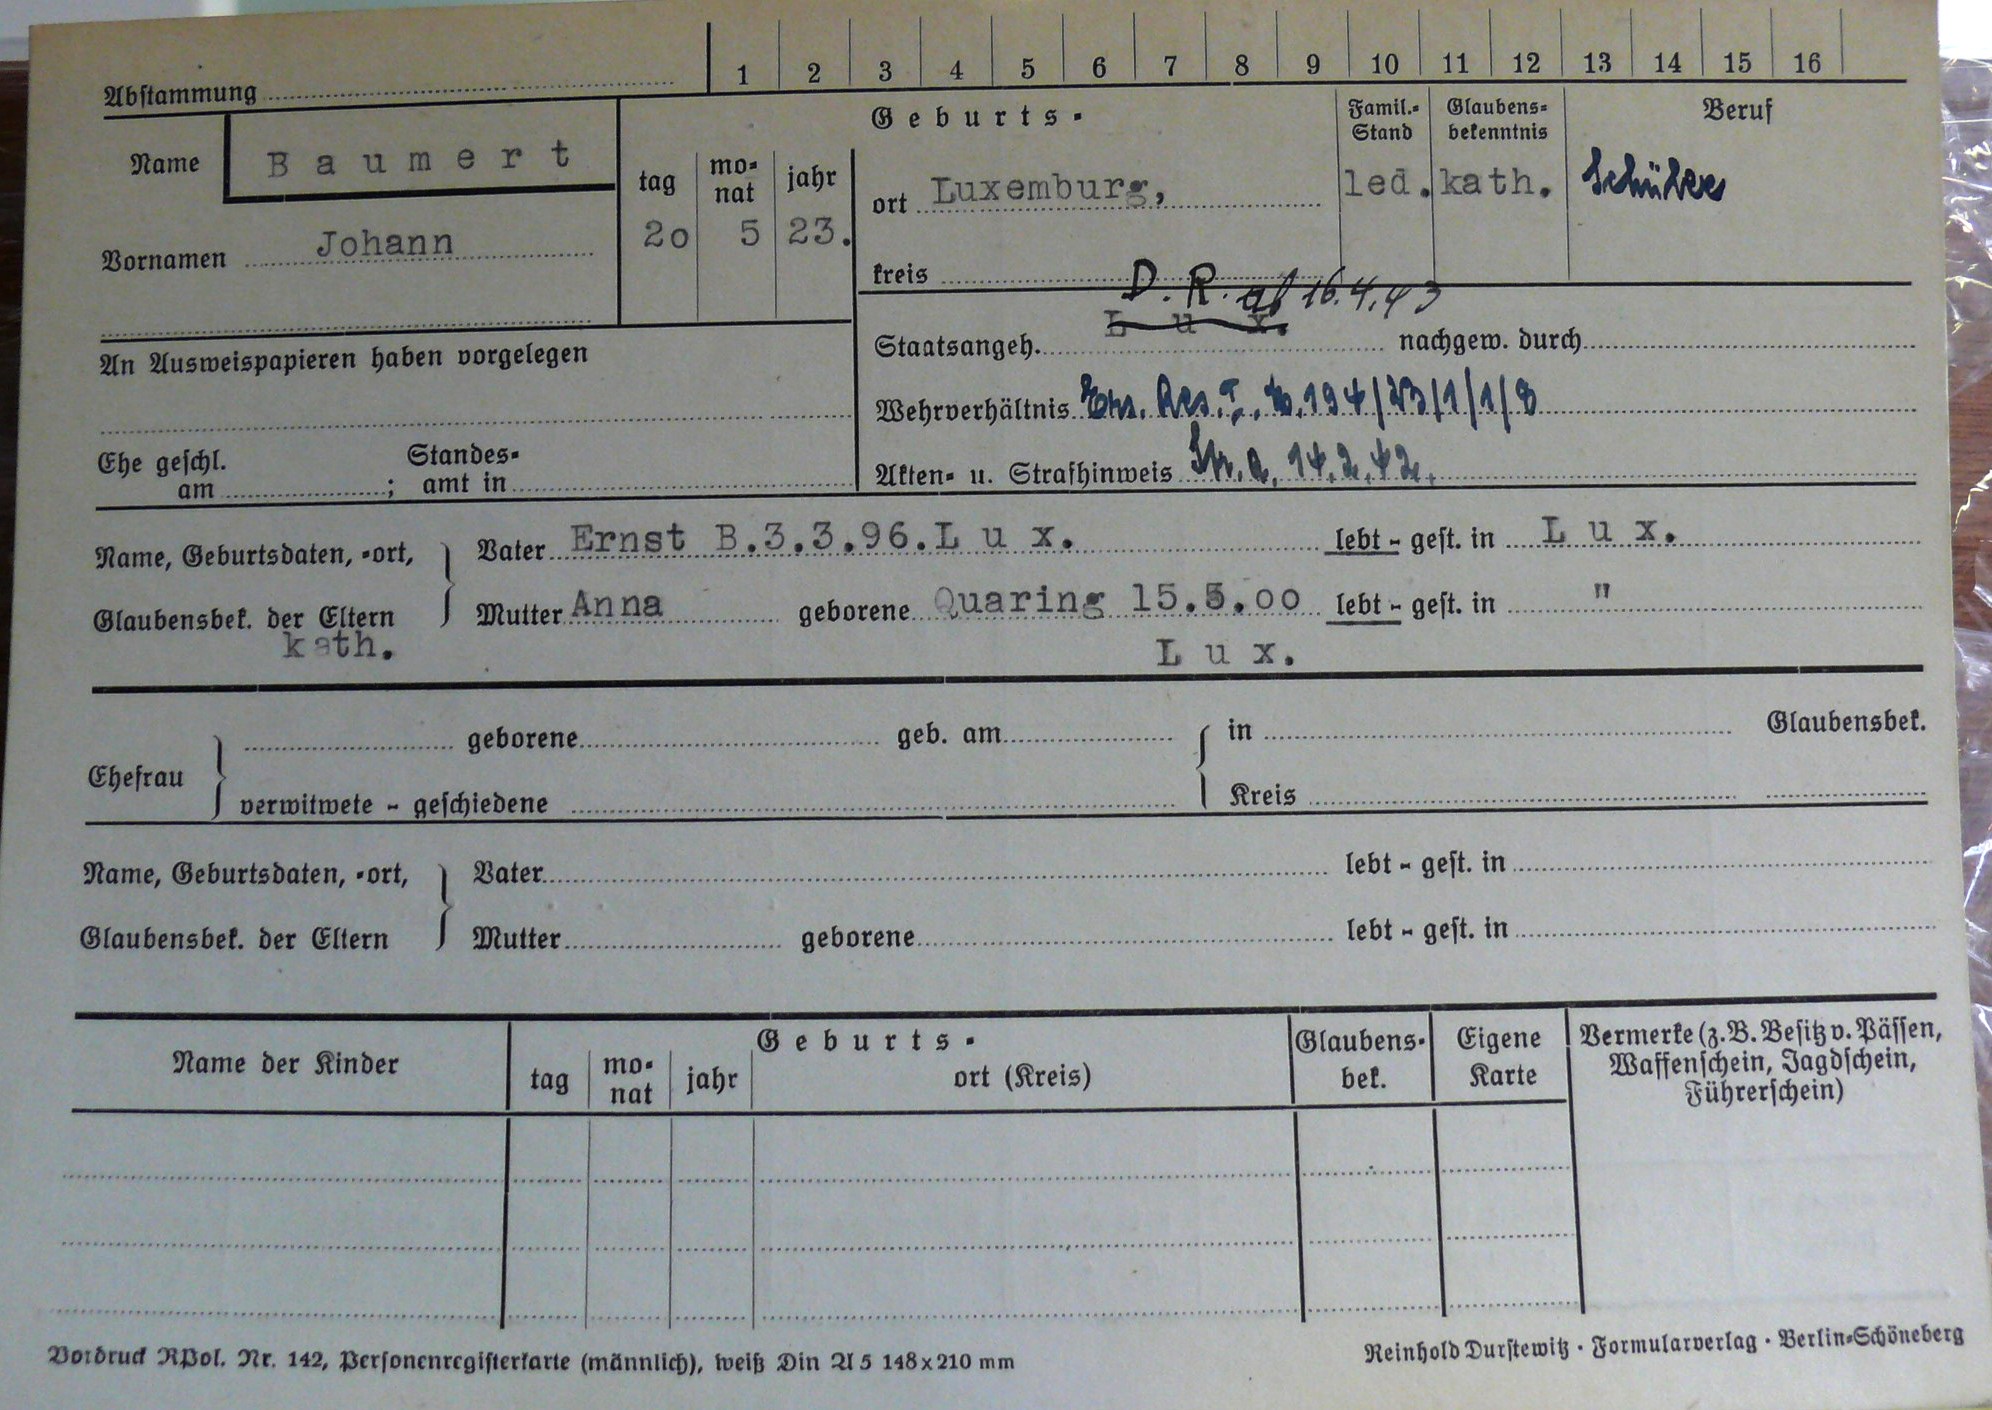 1 2 3 4 5 6 7 8 9 10 11 12 13 14 15 16
Abstammung
Name Baumert
Vornamen Johann
Geburts-
tag mo-nat jahr
20 5 23.
ort Luxemburg,
kreis
Famil.-Stand
led.
Glaubens-bekenntnis
kath.
Beruf
Schüler
D. R. ab 16.4.43
Staatsangeh. Lux. nachgew. durch
An Ausweispapieren haben vorgelegen
Wehrverhältnis Ers. Res. I. 194/23/1/1/8
Ehe geschl. am ; Standes-amt in
Akten- u. Strafhinweis 14.2.42.
Name, Geburtsdaten, -ort,
Glaubensbek. der Eltern
kath.
Vater Ernst B.3.3.96.Lux. lebt - gest. in Lux.
Mutter Anna geborene Quaring 15.5.00 lebt - gest. in "
Lux.
Ehefrau
geborene geb. am in Glaubensbek.
verwitwete - geschiedene Kreis
Name, Geburtsdaten, -ort,
Glaubensbek. der Eltern
Vater lebt - gest. in
Mutter geborene lebt - gest. in
Name der Kinder
Geburts-
tag mo-nat jahr ort (Kreis)
Glaubens-bek.
Eigene Karte
Vermerke (z.B. Besitz v. Pässen,
Waffenschein, Jagdschein,
Führerschein)
Vordruck RPol. Nr. 142, Personenregisterkarte (männlich), weiß Din A5 148x210 mm
Reinhold Durstewitz · Formularverlag · Berlin-Schöneberg